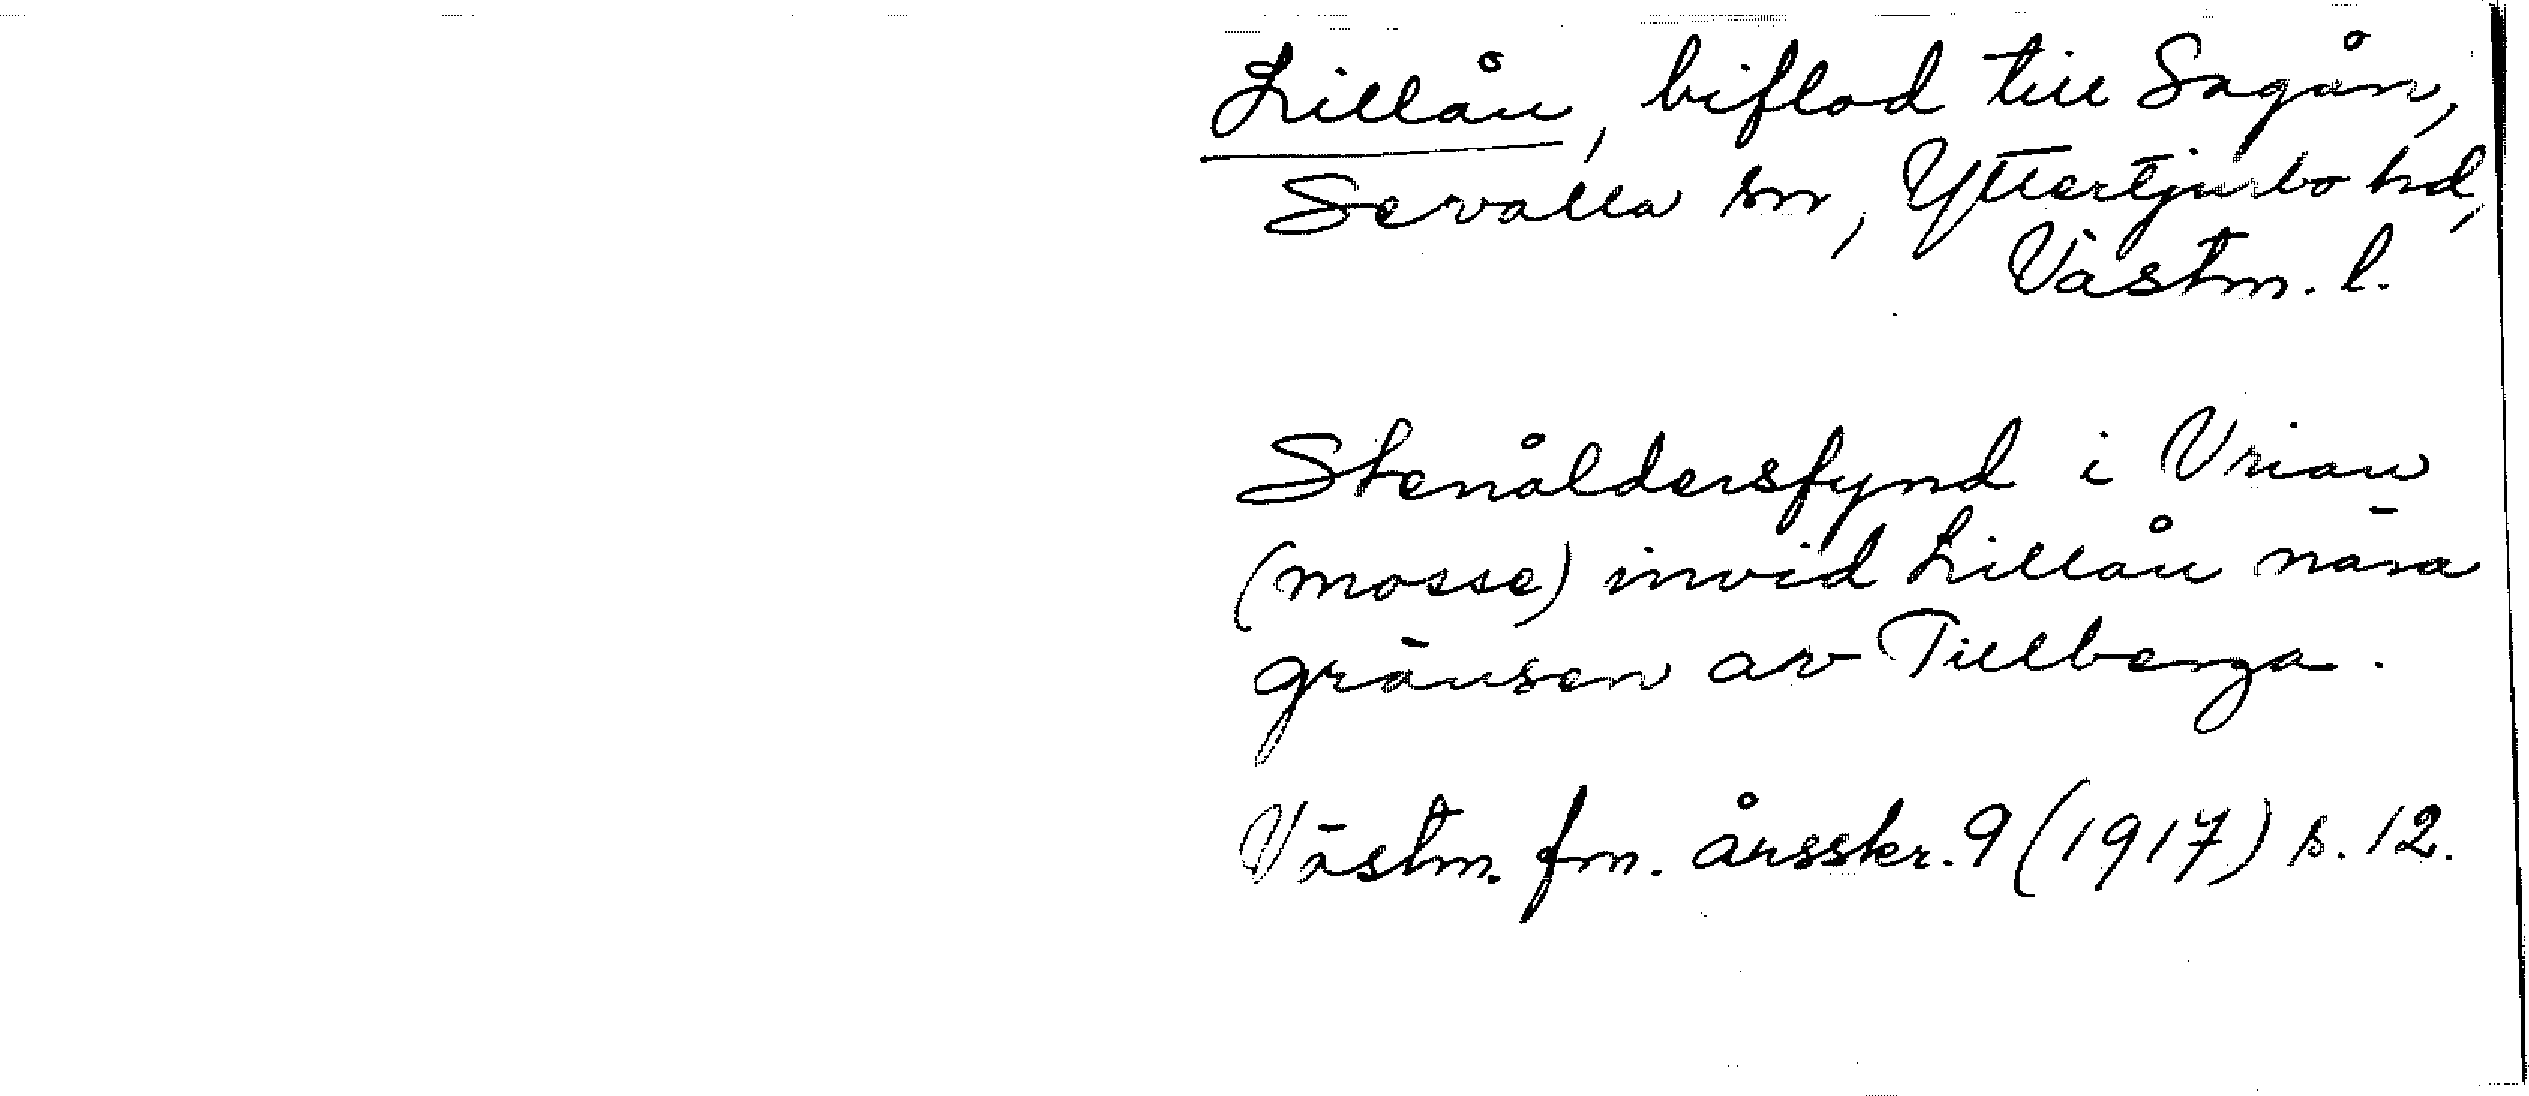 Lillån, biflod till Sagån,
Sevalla sn, Yttertjurbo hd,
Västm. l.
Stenåldersfynd i Vrian
(mosse) invid Lillån nära
gränsen av Tillberga.
Västm. fm. årsskr. 9 (1917) s. 12.